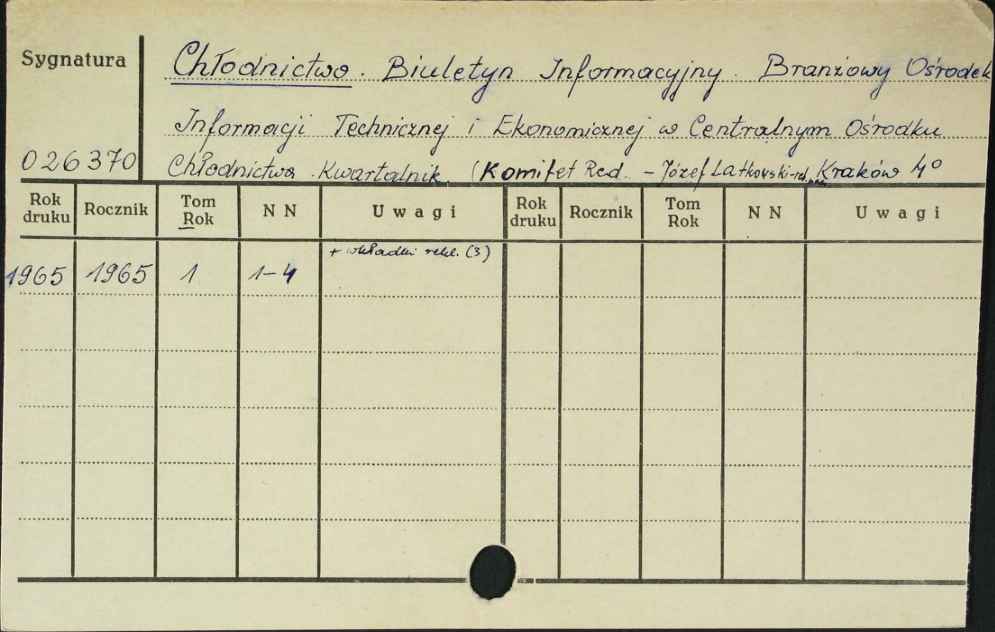 Sygnatura
Chłodnictwo. Biuletyn Informacyjny. Branżowy Ośrodek
Informacji Technicznej i Ekonomicznej w Centralnym Ośrodku
026370
Chłodnictwa. Kwartalnik. (Komitet Red. - Józef Latkowski Kraków 4°
Rok druku Rocznik Tom Rok N N Uwagi Rok druku Rocznik Tom Rok N N Uwagi
+ wkładki rekl. (3)
1965 1965 1 1-4